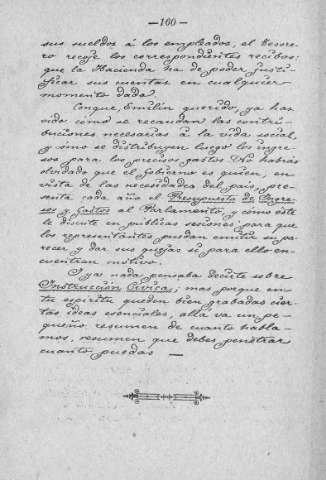 —160—
sus sueldos á los empleados, el Tesore-
ro recoje los correspondientes recibos:
que la Hacienda ha de poder justi-
ficar sus cuentas en cualquier
momento dado.
Conque, Emilín querido, ya has
oido cómo se recaudan las contri-
buciones necesarias á la vida social,
y cómo se distribuyen luego los ingre-
sos para los precisos gastos. No habrás
olvidado que el gobierno es quien, en
vista de las necesidades del país, pre-
senta cada año el Presupuesto de Ingre-
sos y Gastos al Parlamento, y cómo éste
le discute en públicas sesiones para que
los representantes puedan emitir su pa-
recer y dar sus quejas si para ello en-
cuentran motivo.
Y ya nada pensaba decirte sobre
Instrucción Cívica; mas porque en
tu espíritu queden bien grabadas cier-
tas ideas esenciales, allá va un pe-
queño resumen de cuanto habla-
mos, resumen que debes penetrar
cuanto puedas —